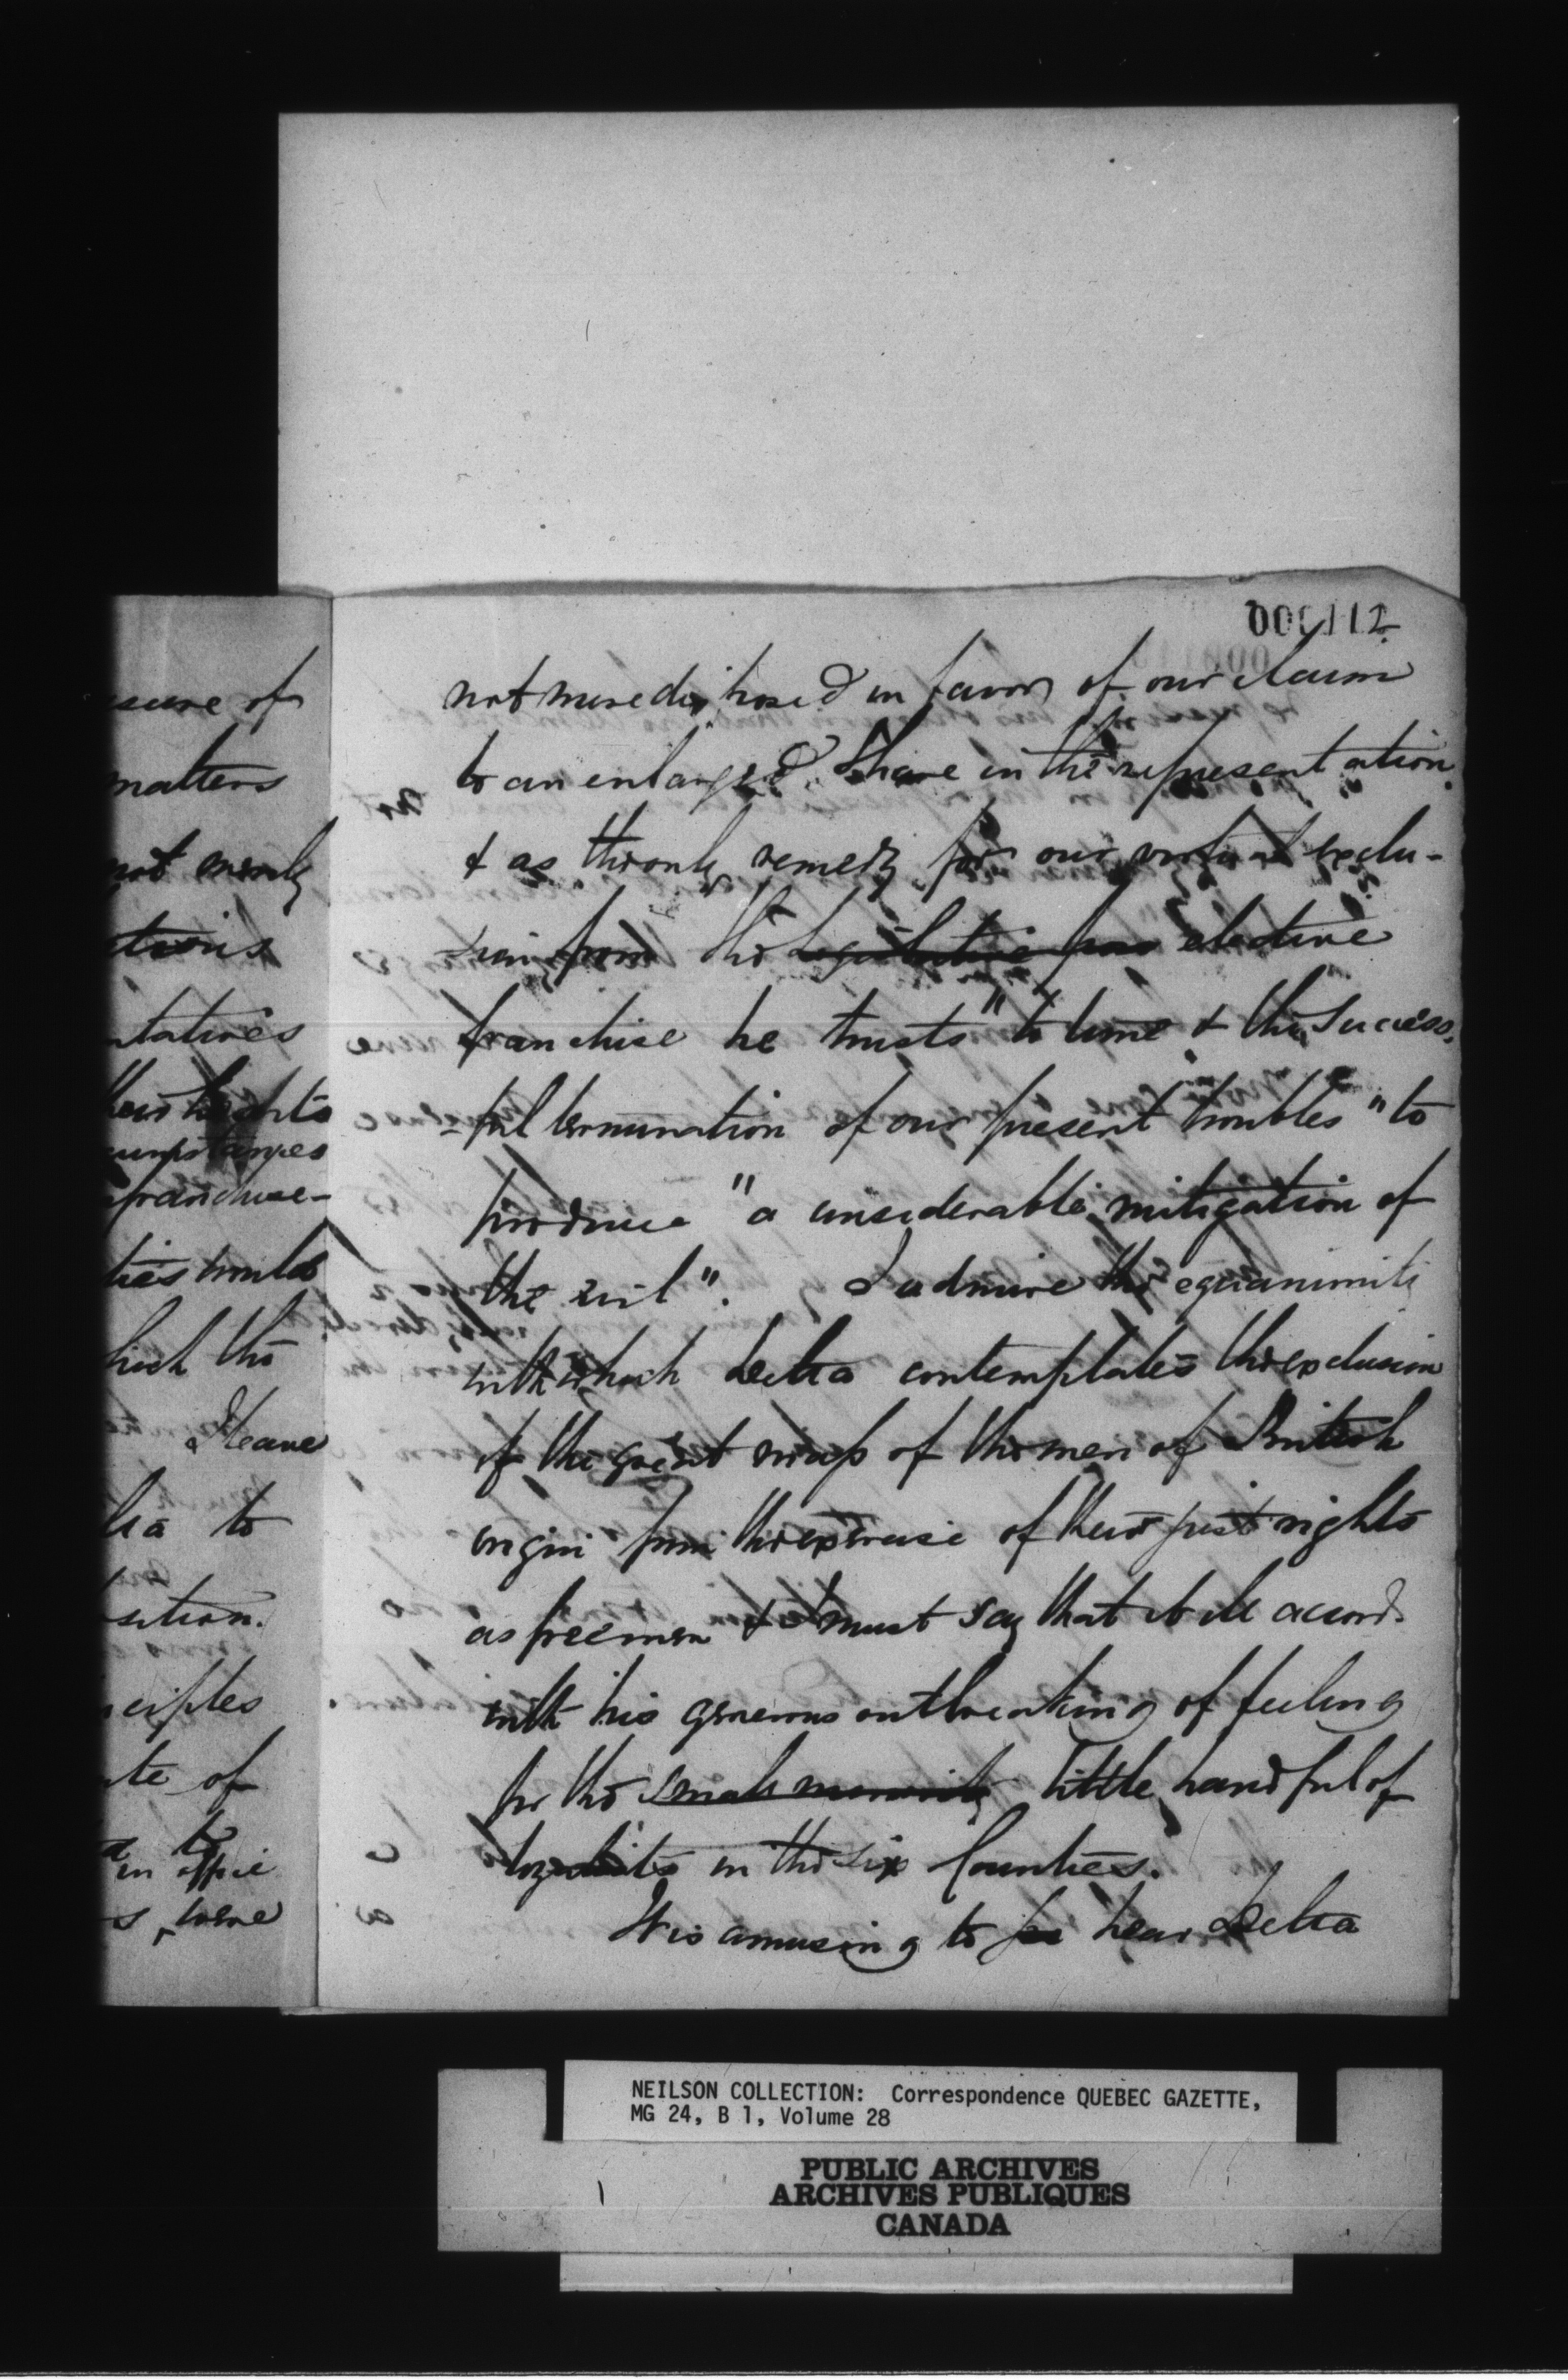 000112
not more disposed in favor of our claim
to an enlarged share in the representation
& as the only remedy for our virtual exclu-
sion from the legislative fran elective
franchise he trusts "to time & the success-
-ful termination of our present troubles" to
produce "a considerable mitigation of
the evil". I admire the equanimity
with which Delta contemplates the exclusion
of the great mass of the men of British
origin from the exercise of their just rights
as freemen & I must say that it ill accords
with his generous outbreaking of feeling
for the small minority little handful of
loyalists in the six Counties.
It is amusing to hear Delta
matters
not merely
ctions
ntatives
their hearts
cumstances
franchise-
ties would
hich the
I leave
lta to
sition.
nciples
te of
to
in office
s, were
NEILSON COLLECTION: Correspondence QUEBEC GAZETTE,
MG 24, B 1, Volume 28
PUBLIC ARCHIVES
ARCHIVES PUBLIQUES
CANADA